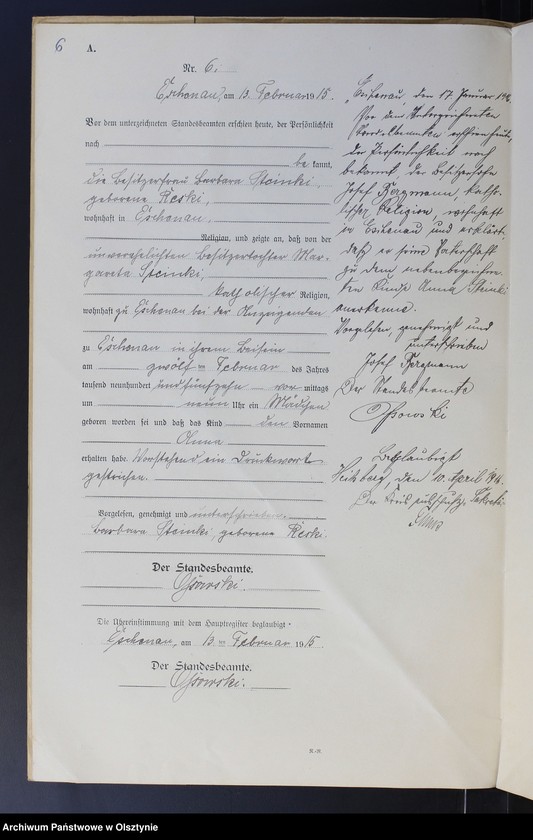 6
A.
Nr. 6.
Eschenau, am 13. Februar 1915.
Vor dem unterzeichneten Standesbeamten erschien heute, der Persönlichkeit
nach
be kannt,
die Besitzerfrau Barbara Steinki,
geborene Reski,
wohnhaft in Eschenau,
Religion, und zeigte an, daß von der
unverehelichten Besitzertochter Mar-
gareta Steinki,
katholischer Religion,
wohnhaft zu Eschenau bei der Anzeigenden
zu Eschenau in ihrem Beisein
am zwölf ten Februar des Jahres
tausend neunhundert und fünfzehn vor mittags
um neun Uhr ein Mädchen
geboren worden sei und daß das Kind den Vornamen
Anna
erhalten habe. Vorstehend ein Druckwort
gestrichen.
Vorgelesen, genehmigt und unterschrieben
Barbara Steinki, geborene Reski.
Der Standesbeamte.
Ossowski.
Die Übereinstimmung mit dem Hauptregister beglaubigt
Eschenau, am 13 ten Februar 1915.
Der Standesbeamte.
Ossowski.
Eschenau, den 17. Januar
Vor dem unterzeichneten
Standesbeamten erschien heute,
der Persönlichkeit nach
bekannt, der Besitzersohn
Josef Bergmann, katho-
lischer Religion, wohnhaft
in Eschenau und erklärt,
daß er seine Vaterschaft
zu dem nebenbezeichne-
ten Kinde Anna Steinki
anerkenne.
Vorgelesen, genehmigt und
unterschrieben
Josef Bergmann
Der Standesbeamte
Ossowski
Beglaubigt
Heilsberg, den 10. April 1916.
Der Kreisausschuß-Sekretär
H.-R.
Archiwum Państwowe w Olsztynie